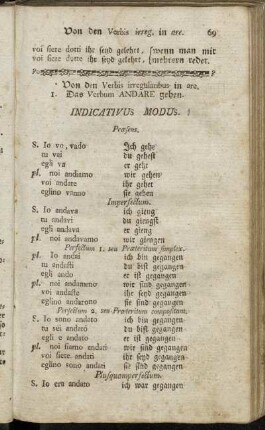 Von den Verbis irreg. in are. 69
voi siete dotti ihr seyd gelehrt, {wenn man mit
voi siete dotto ihr seyd gelehrt, {mehrern redet.
Von den Verbis irregularibus in are.
1. Das Verbum ANDARE gehen.
INDICATIVUS MODUS.
Præsens.
S. Io vo, vado Ich gehe
tu vai du gehest
egli va er geht
pl. noi andiamo wir gehen
voi andate ihr gehet
eglino vanno sie gehen
Imperfectum.
S. Io andava ich gieng
tu andavi du giengst
egli andava er gieng
pl. noi andavamo wir giengen
Perfectum 1. seu Præteritum simplex.
S. Io andai ich bin gegangen
tu andasti du bist gegangen
egli andò er ist gegangen
pl. noi andammo wir sind gegangen
voi andaste ihr seyd gegangen
eglino andarono sie sind gegangen
Perfectum 2. seu Præteritum compositum.
S. Io sono andato ich bin gegangen
tu sei andato du bist gegangen
egli è andato er ist gegangen
pl. noi siamo andati wir sind gegangen
voi siete andati ihr seyd gegangen
eglino sono andati sie sind gegangen
Plusquamperfectum.
S. Io era andato ich war gegangen